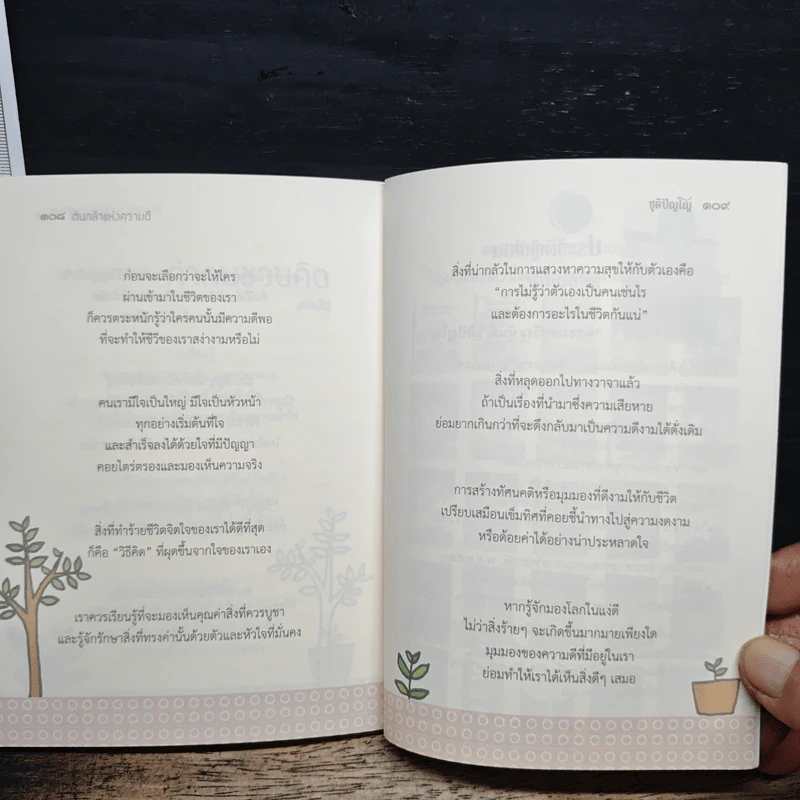 ๑๐๘ ต้นกล้าแห่งความดี
ก่อนจะเลือกว่าจะให้ใคร
ผ่านเข้ามาในชีวิตของเรา
ก็ควรตระหนักรู้ว่าใครคนนั้นมีความดีพอ
ที่จะทำให้ชีวีของเราสง่างามหรือไม่
คนเรามีใจเป็นใหญ่ มีใจเป็นหัวหน้า
ทุกอย่างเริ่มต้นที่ใจ
และสำเร็จลงได้ด้วยใจที่มีปัญญา
คอยไตร่ตรองและมองเห็นความจริง
สิ่งที่ทำร้ายชีวิตจิตใจของเราได้ดีที่สุด
ก็คือ “วิธีคิด” ที่ผุดขึ้นจากใจของเราเอง
เราควรเรียนรู้ที่จะมองเห็นคุณค่าสิ่งที่ควรบูชา
และรู้จักรักษาสิ่งที่ทรงค่านั้นด้วยตัวและหัวใจที่มั่นคง
ชุติปัญโญ ๑๐๙
สิ่งที่น่ากลัวในการแสวงหาความสุขให้กับตัวเองคือ
“การไม่รู้ว่าตัวเองเป็นคนเช่นไร
และต้องการอะไรในชีวิตกันแน่”
สิ่งที่หลุดออกไปทางวาจาแล้ว
ถ้าเป็นเรื่องที่นำมาซึ่งความเสียหาย
ย่อมยากเกินกว่าที่จะดึงกลับมาเป็นความดีงามได้ดั่งเดิม
การสร้างทัศนคติหรือมุมมองที่ดีงามให้กับชีวิต
เปรียบเสมือนเข็มทิศที่คอยชี้นำทางไปสู่ความงดงาม
หรือด้อยค่าได้อย่างน่าประหลาดใจ
หากรู้จักมองโลกในแง่ดี
ไม่ว่าสิ่งร้ายๆ จะเกิดขึ้นมากมายเพียงใด
มุมมองของความดีที่มีอยู่ในเรา
ย่อมทำให้เราได้เห็นสิ่งดีๆ เสมอ